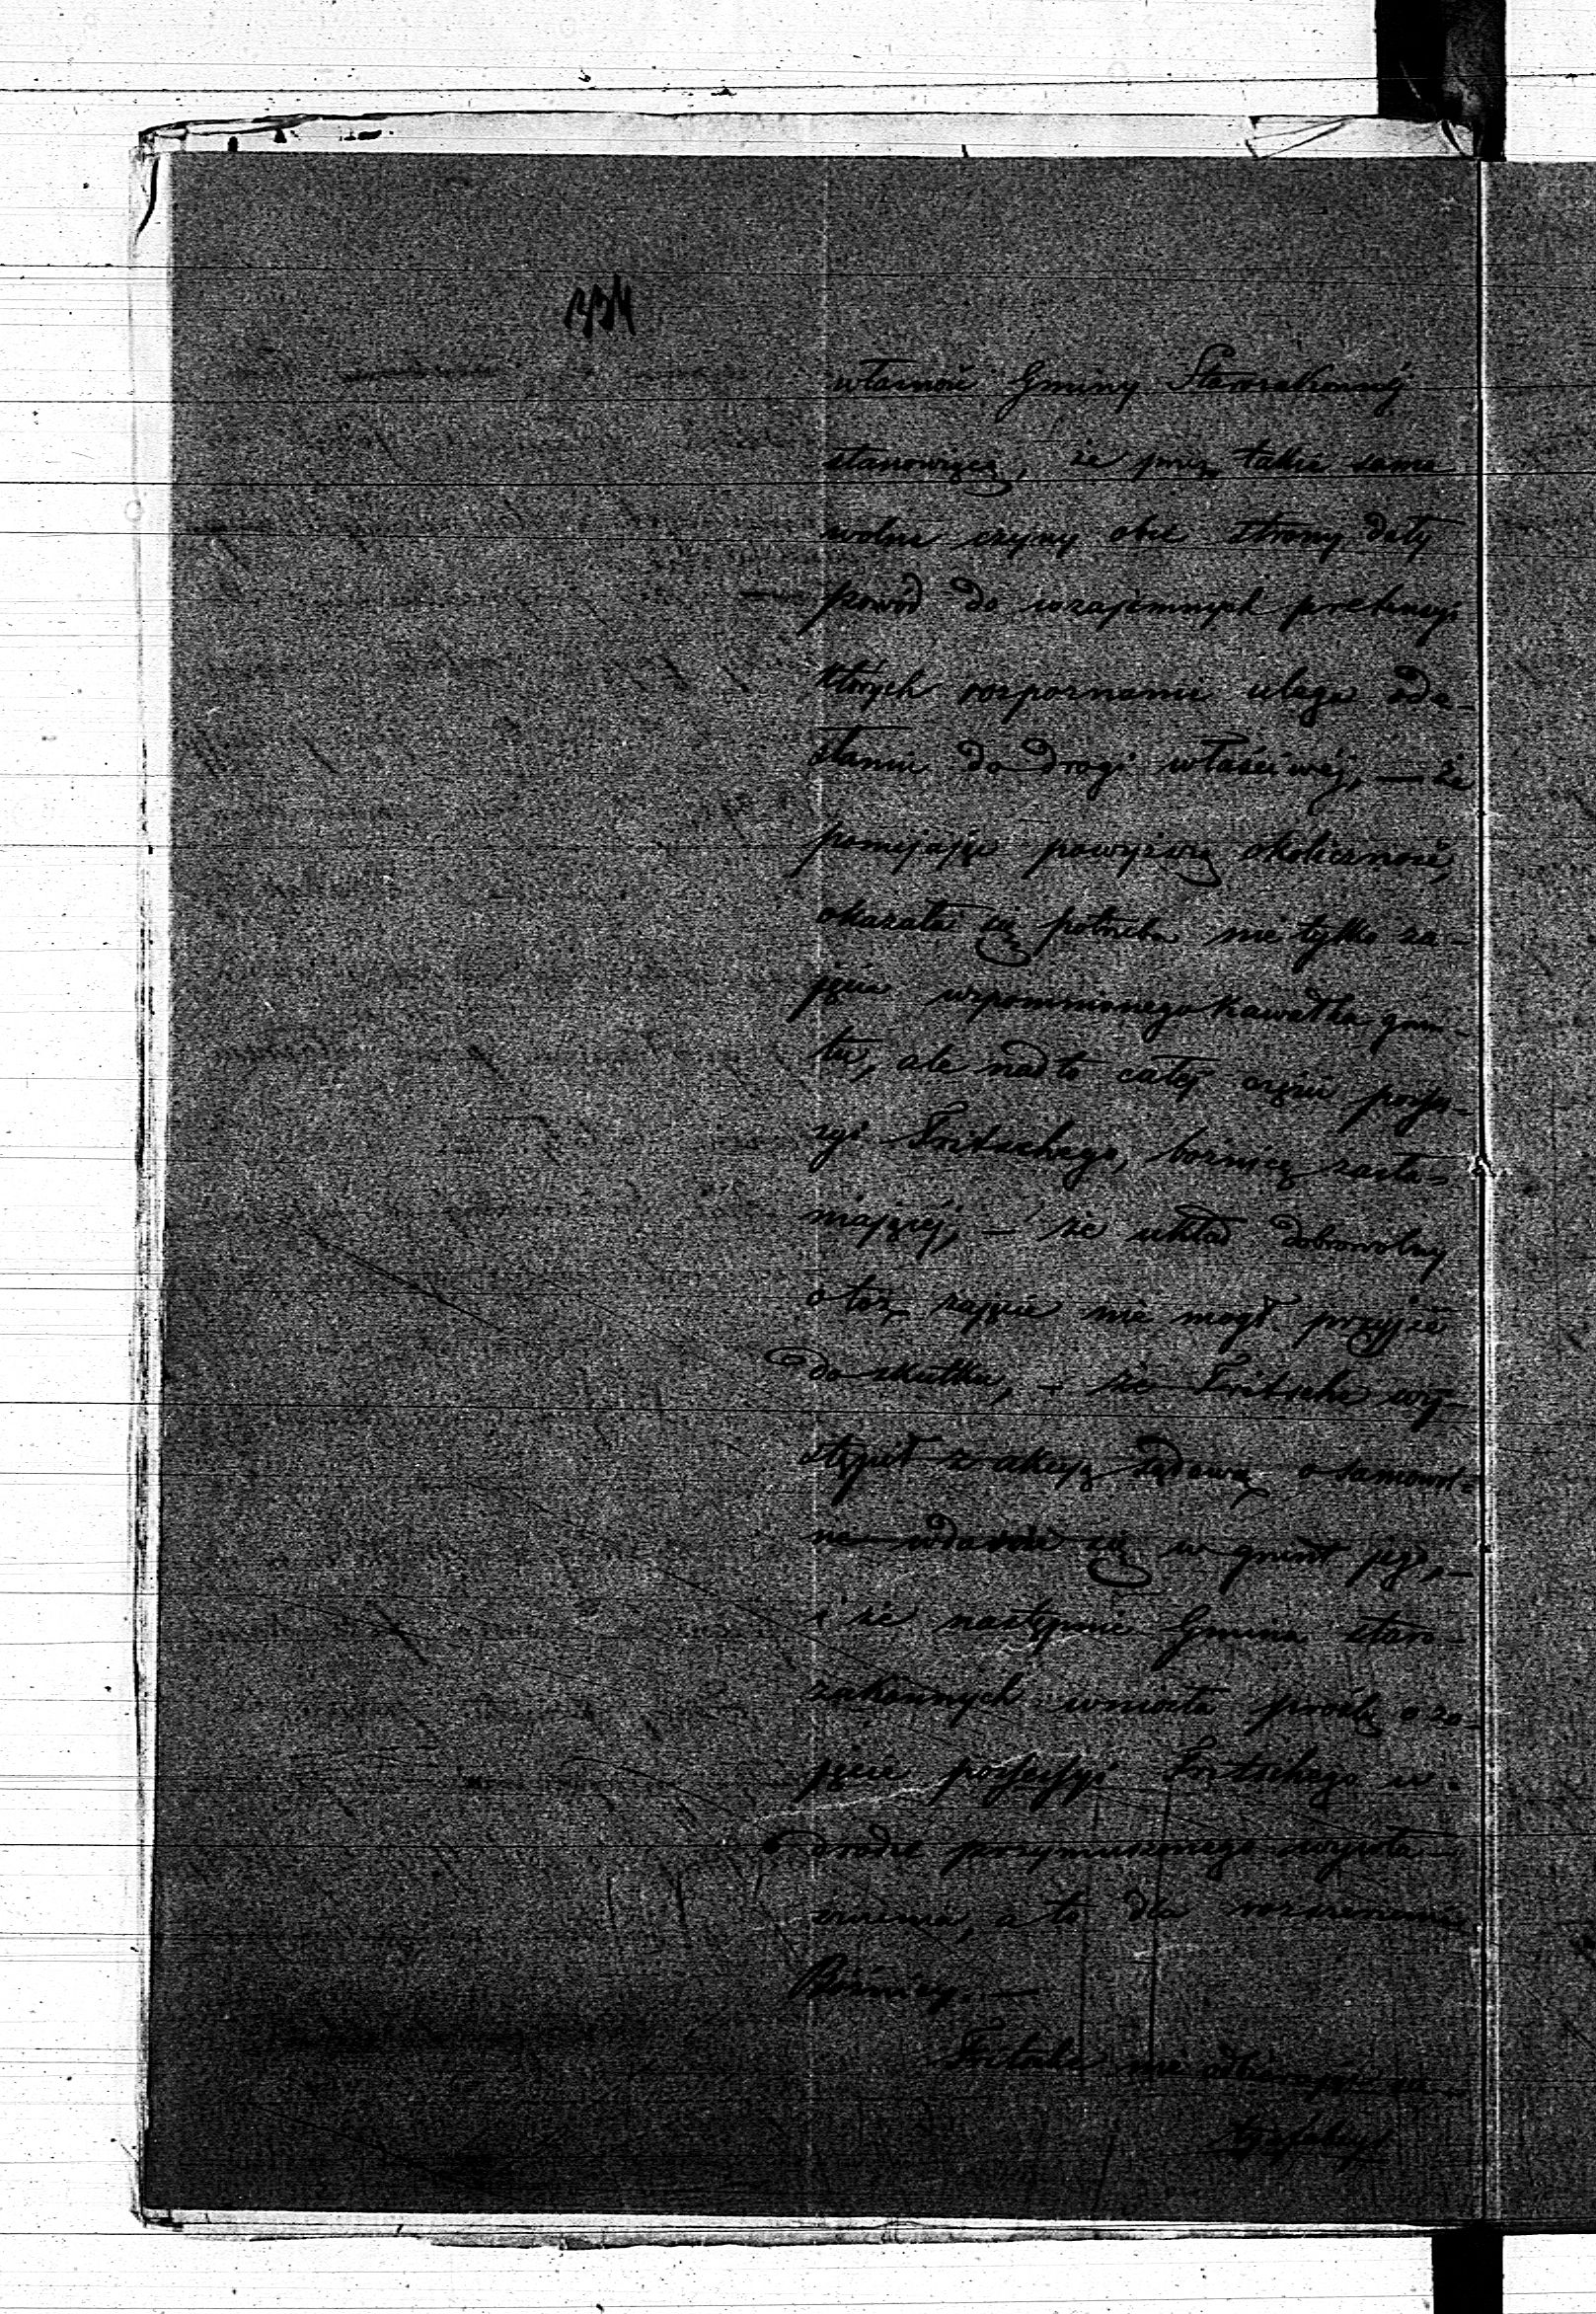 własność Gminy Starozakonnéj
stanowiącą, że przez takie samo
wolne czyny obie strony dały
powód do wzajemnych pretensyi
których rozpoznanie ulega ode-
słaniu do drogi właściwéj, — że
pomijając powyższą okoliczność,
okazała się potrzeba nie tylko za-
jęcia wspomnionego kawałka grun-
tu, ale nadto całéj części posse-
syi Fritschego, bożnicę zasła-
niającéj, — że układ dobrowolny
o toż zajęcie nie mógł przyjść
do skutku, — że Fritsche wy-
stąpił z akcyą sądową o samowol-
ne wdanie się w grunt jego, —
i że następnie Gmina staro-
zakonnych wniosła prośbę o za-
jęcie possessyi Fritschego w
drodze przymuszonego wywła-
szczenia, a to dla rozszerzenia
Bożnicy. —
Fritsche nie odbierając sa-
tysfakcyi